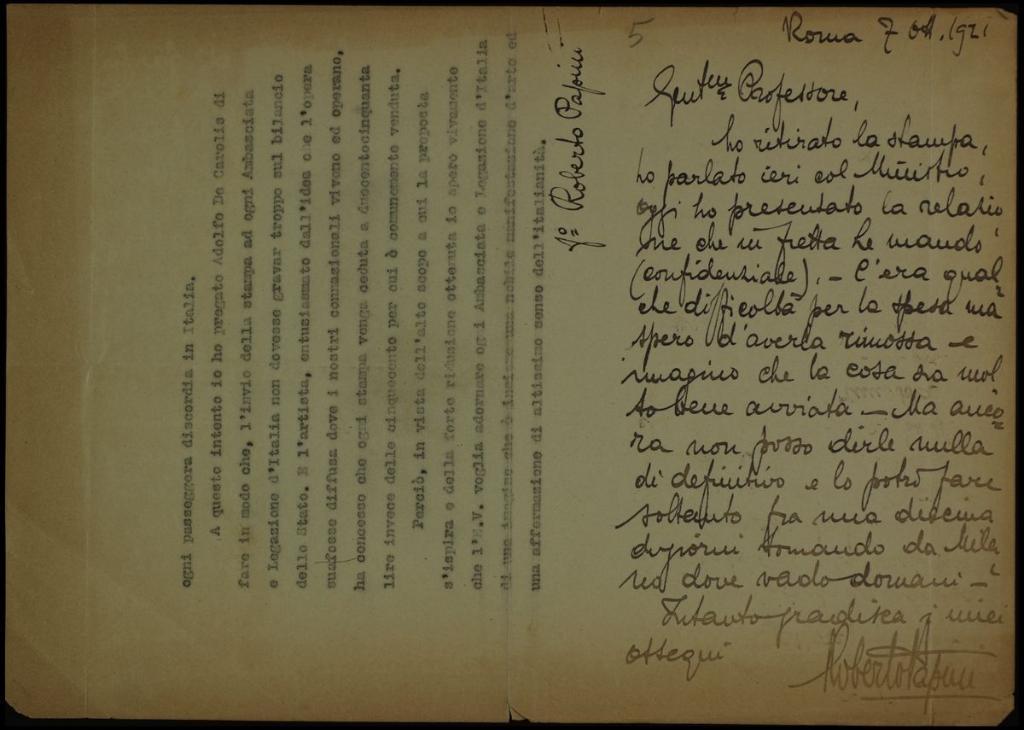 ogni passeggera discordia in Italia.
A questo intento io ho pregato Adolfo De Carolis di
fare in modo che, l'invio della stampa ad ogni Ambasciata
e Legazione d'Italia non dovesse gravar troppo sul bilancio
dello Stato. E l'artista, entusiasmato dall'idea che l'opera
sua fosse diffusa dove i nostri connazionali vivono ed operano,
ha concesso che ogni stampa venga ceduta a duecentocinquanta
lire invece delle cinquecento per cui è comunemente venduta.
Perciò, in vista dell'alto scopo a cui la proposta
s'ispira e della forte riduzione ottenuta io spero vivamente
che l'E.V. voglia adornare ogni Ambasciata e Legazione d'Italia
di una imagine che è insieme una nobile manifestazione d'arte ed
una affermazione di altissimo senso dell'italianità.
f° Roberto Papini
5
Roma 7 ott. 1921
Gent.mo Professore,
ho ritirato la stampa,
ho parlato ieri col Ministro,
oggi ho presentato la relazio
ne che in fretta Le mando
(confidenziale). – C'era qual=
che difficoltà per la spesa ma
spero d'averla rimossa e
imagino che la cosa sia mol
to bene avviata – Ma anco=
ra non posso dirle nulla
di definitivo e lo potrò fare
soltanto fra una diecina
di giorni tornando da Mila
no dove vado domani –
Intanto gradisca i miei
ossequi
Roberto Papini